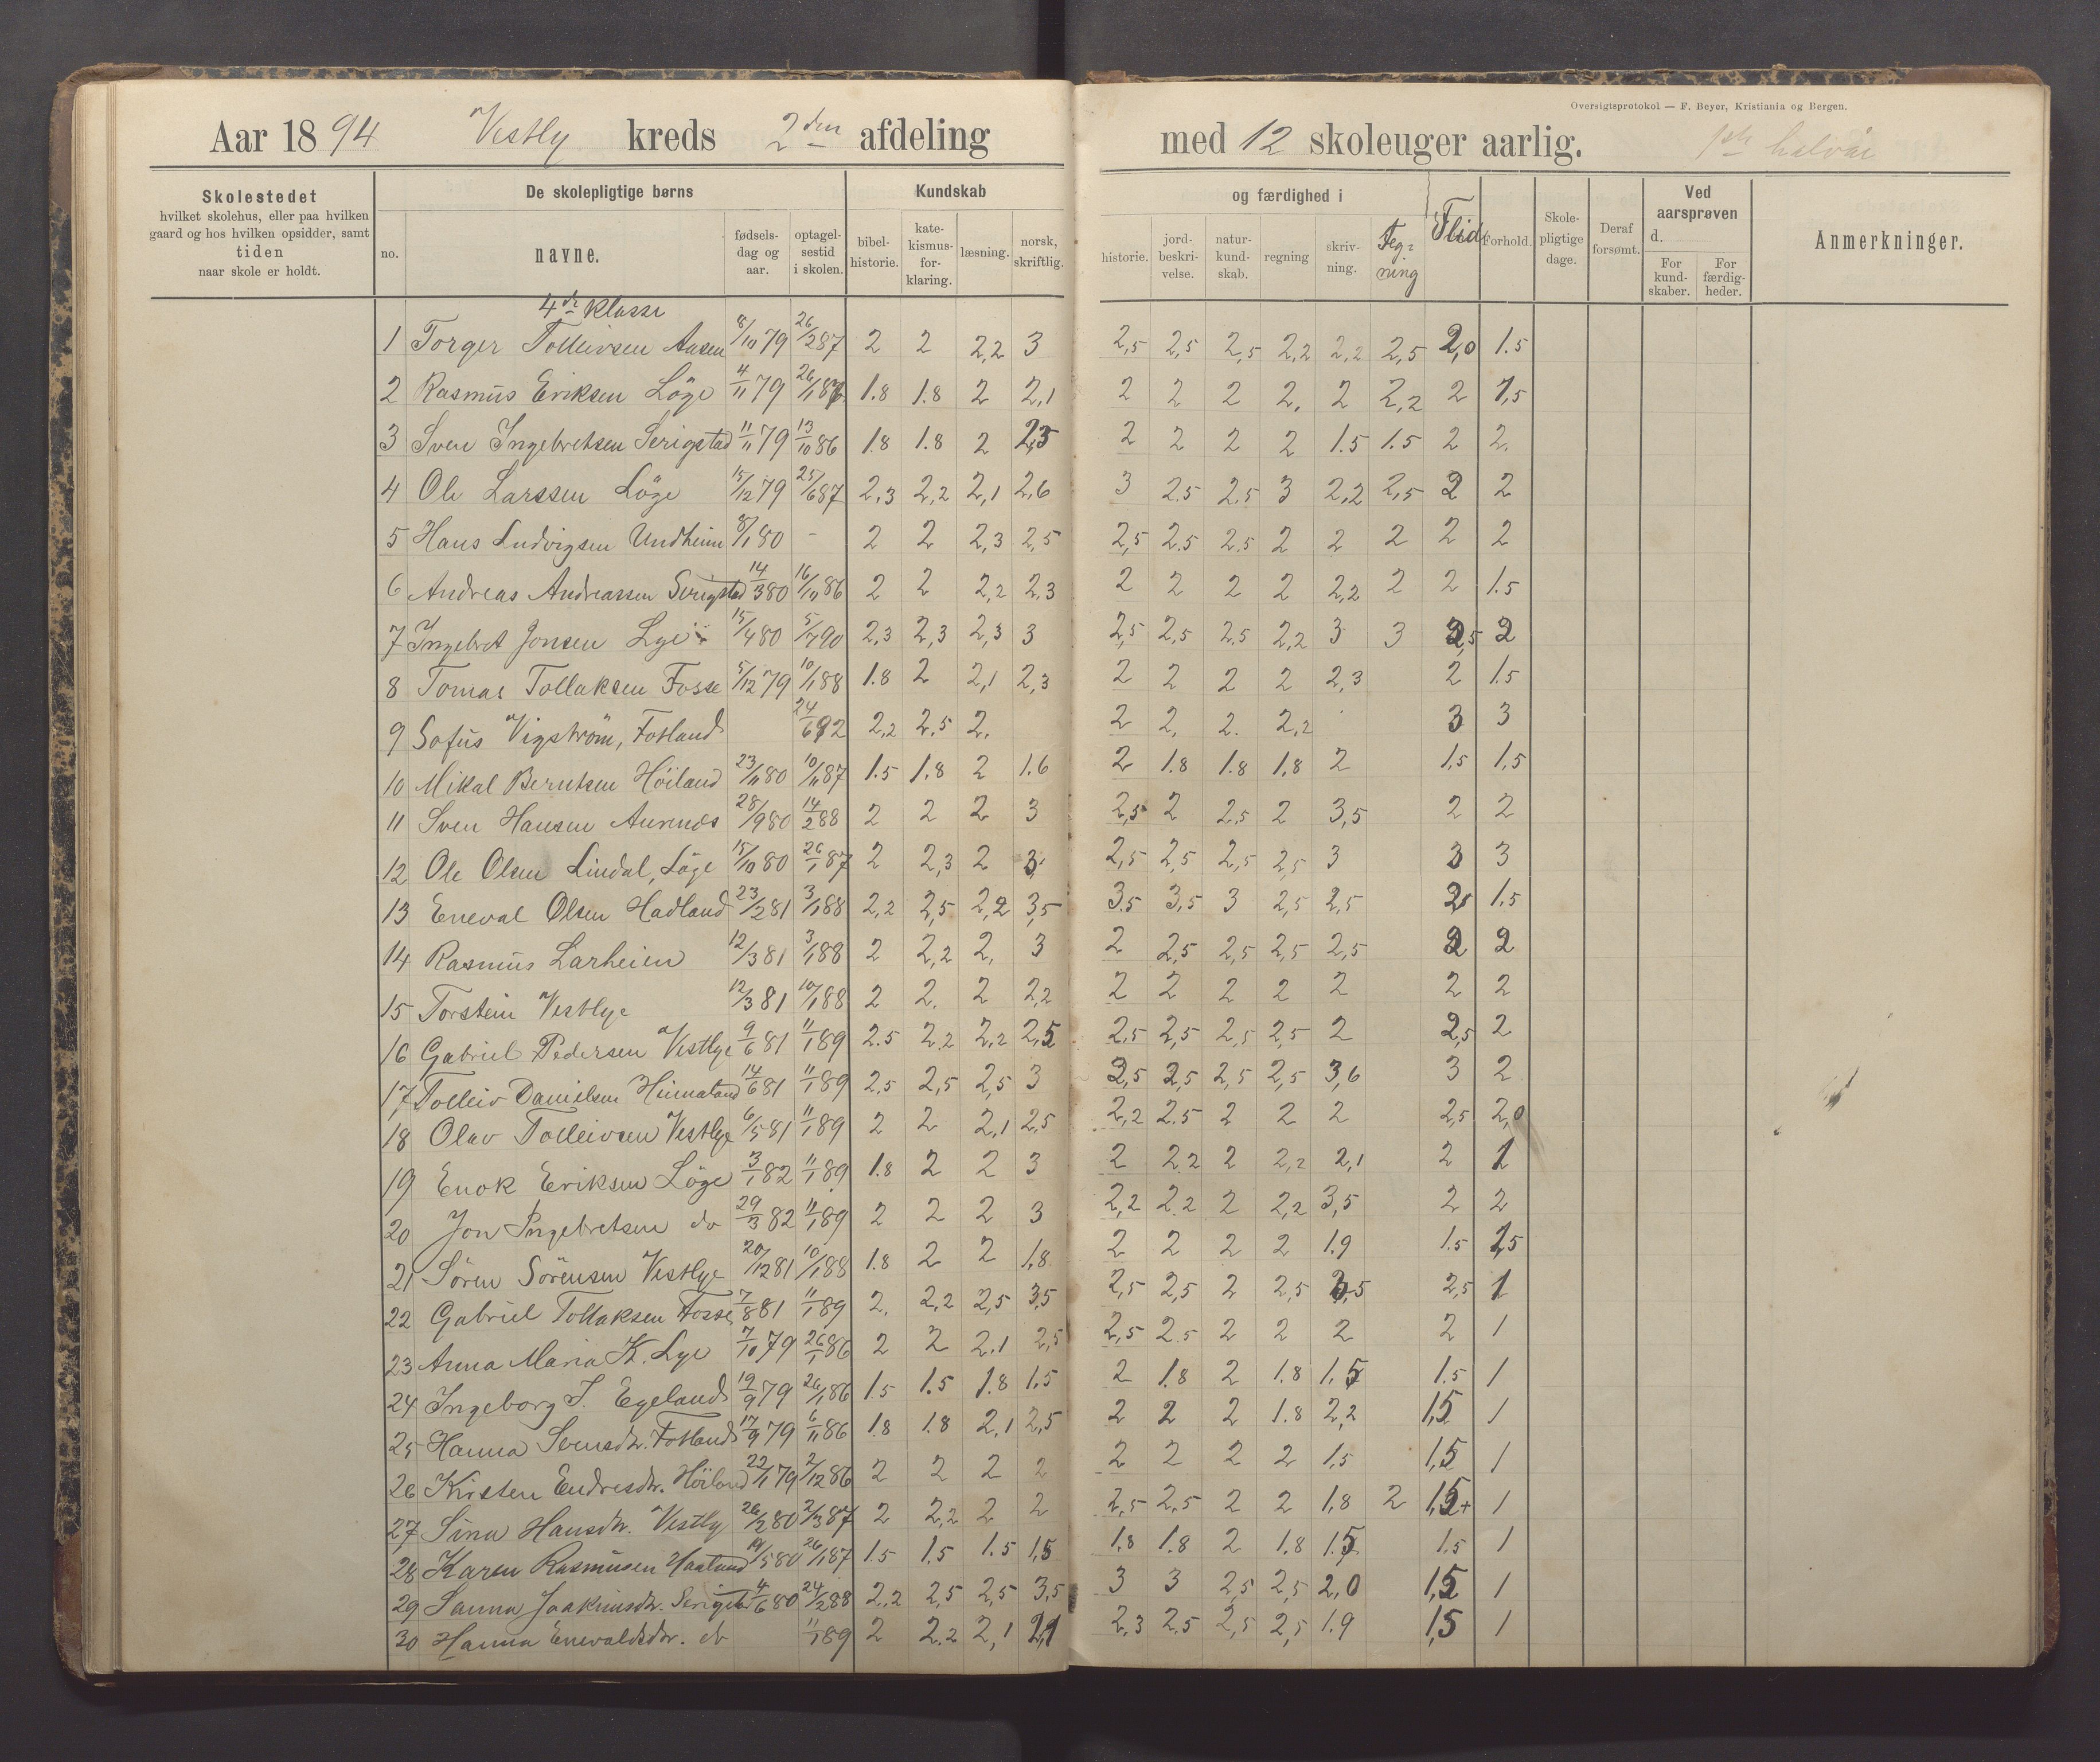 Oversigtsprotokol — F. Beyer, Kristiania og Bergen.
Aar 1894 Vestly kreds 2den afdeling med 12 skoleuger aarlig. 1ste halvår
Skolestedet hvilket skolehus, eller paa hvilken gaard og hos hvilken opsidder, samt tiden naar skole er holdt.
De skolepligtige børns
no. navne. fødsels-dag og aar. optagel-sestid i skolen.
Kundskab og færdighed i
bibel-historie. kate-kismus-for-klaring. læsning. norsk, skriftlig. historie. jord-beskri-velse. natur-kund-skab. regning skriv-ning. Teg-ning Flid Forhold.
Skole-pligtige dage. Deraf forsømt. Ved aarsprøven d. For kund-skaber. For færdig-heder. Anmerkninger.
4de Klasse
1 Torger Tolleivsen Aasen 8/10 79 26/2 87 2 2 2,2 3 2,5 2,5 2,5 2,2 2,2 2,5 2,0 1.5
2 Rasmus Eriksen Löge 4/11 79 26/1 87 1.8 1.8 2 2,1 2 2 2 2. 2 2,2 2 1,5
3 Sven Ingebretsen Serigstad 11/11 79 13/10 86 1.8 1.8 2 2,5 2 2 2 2 1.5 1.5 2 2.
4 Ole Larssen Löge 15/12 79 25/6 87 2,3 2,2 2,1 2,6 3 2.5 2.5 3 2,2 2,5 2 2
5 Hans Ludvigsen Undheim 8/1 80 - 2 2 2,3 2,5 2,5 2.5 2.5 2 2 2 2 2
6 Andreas Andreassen Serigstad 14/3 80 16/11 86 2 2 2,2 2,3 2 2 2 2 2,2 2 2 1.5
7 Ingebret Jonsen Lye 15/4 80 5/7 90 2,3 2,3 2,3 3 2,5 2,5 2,5 2,2 3 3 2,5 2
8 Tomas Tollaksen Fosse 5/12 79 10/1 88 1.8 2 2,1 2,3 2 2 2 2 2,3 2 1.5
9 Sofus Vigström, Fotland 24/6 92 2,2 2,5 2. 2 2, 2. 2,2 3 3
10 Mikal Berntsen Höiland 23/11 80 10/11 87 1.5 1,8 2 1.6 2 1.8 1.8 1,8 2 1,5 1,5
11 Sven Hansen Aurenes 28/9 80 14/2 88 2 2 2 3 2,5 2 2,5 2 3,5 2 2
12 Ole Olsen Lindal, Löge 15/10 80 26/1 87 2 2,3 2 3 2,5 2,5 2,5 2,5 3 3 3
13 Eneval Olsen Hadland 23/2 81 3/1 88 2,2 2,5 2,2 3,5 3.5 3,5 3 2,5 2,5 2,5 1.5
14 Rasmus Larheien 12/3 81 3/1 88 2 2,2 2, 3 2 2,5 2,5 2,5 2,5 2 2
15 Torstein Vestlye 12/3 81 10/1 88 2 2. 2 2,2 2 2 2 2 2 2 2
16 Gabriel Pedersen Vestlye 9/6 81 11/1 89 2.5 2.2 2,2 2,5 2,5 2,5 2,5 2,5 2 2,5 2
17 Tolleiv Danielsen Heimaland 14/6 81 11/1 89 2,5 2,5 2,5 3 2,5 2,5 2,5 2,5 3,6 3 2
18 Olav Tolleivsen Vestlye 6/5 81 11/1 89 2 2 2,1 2,5 2,2 2.5 2 2 2 2,5 2,0
19 Enok Eriksen Löge 3/1 82 11/1 89 1.8 2 2 3 2 2.2 2 2,2 2,1 2 1
20 Jon Ingebretsen do 29/3 82 11/1 89 2 2 2 3 2,2 2.2 2 2,2 3,5 2 2
21 Sören Sörensen Vestlye 20/12 81 10/1 88 1.8 2 2 1,8 2 2 2 2 1.9 1.5 1,5
22 Gabriel Tollaksen Fosse 7/8 81 11/1 89 2. 2,2 2,5 3,5 2,5 2,5 2 2,5 3,5 2,5 1
23 Anna Maria K. Lye 7/10 79 26/1 86 2 2 2.1 2,5 2,5 2.5 2 2 2 2 1
24 Ingeborg T. Egeland 19/9 79 26/1 86 1.5 1.5 1.8 1.5 2 1.8 2 1.8 1.5 1.5 1
25 Hanna Svensdtr. Fotland 17/9 79 6/11 86 1.8 1.8 2,1 2,5 2 2 2 1.8 2,2 1,5 1
26 Kirsten Endresdtr. Höiland 22/1 79 2/12 86 2 2 2 2 2 2 2 2 1,5 1,5 1
27 Sina Hansdtr. Vestly 26/2 80 2/3 87 2 2,2 2 2 2,5 2.5 2 2 1,8 2 1,5+ 1
28 Karen Rasmusen Haaland 19/5 80 26/1 87 1.5 1.5 1.5 1,5 1.8 1.8 2 1.8 1.5 1.5 1
29 Sanna Joakimsdtr. Serigstad 4/6 80 24/2 88 2,2 2,5 2,5 3,5 3 3 2,5 2,5 2,0 1,5 1
30 Hanna Enevaldsdtr. do 11/1 89 2 2.2 2,1 2,1 2.3 2.5 2,5 2,5 1.9 1,5 1